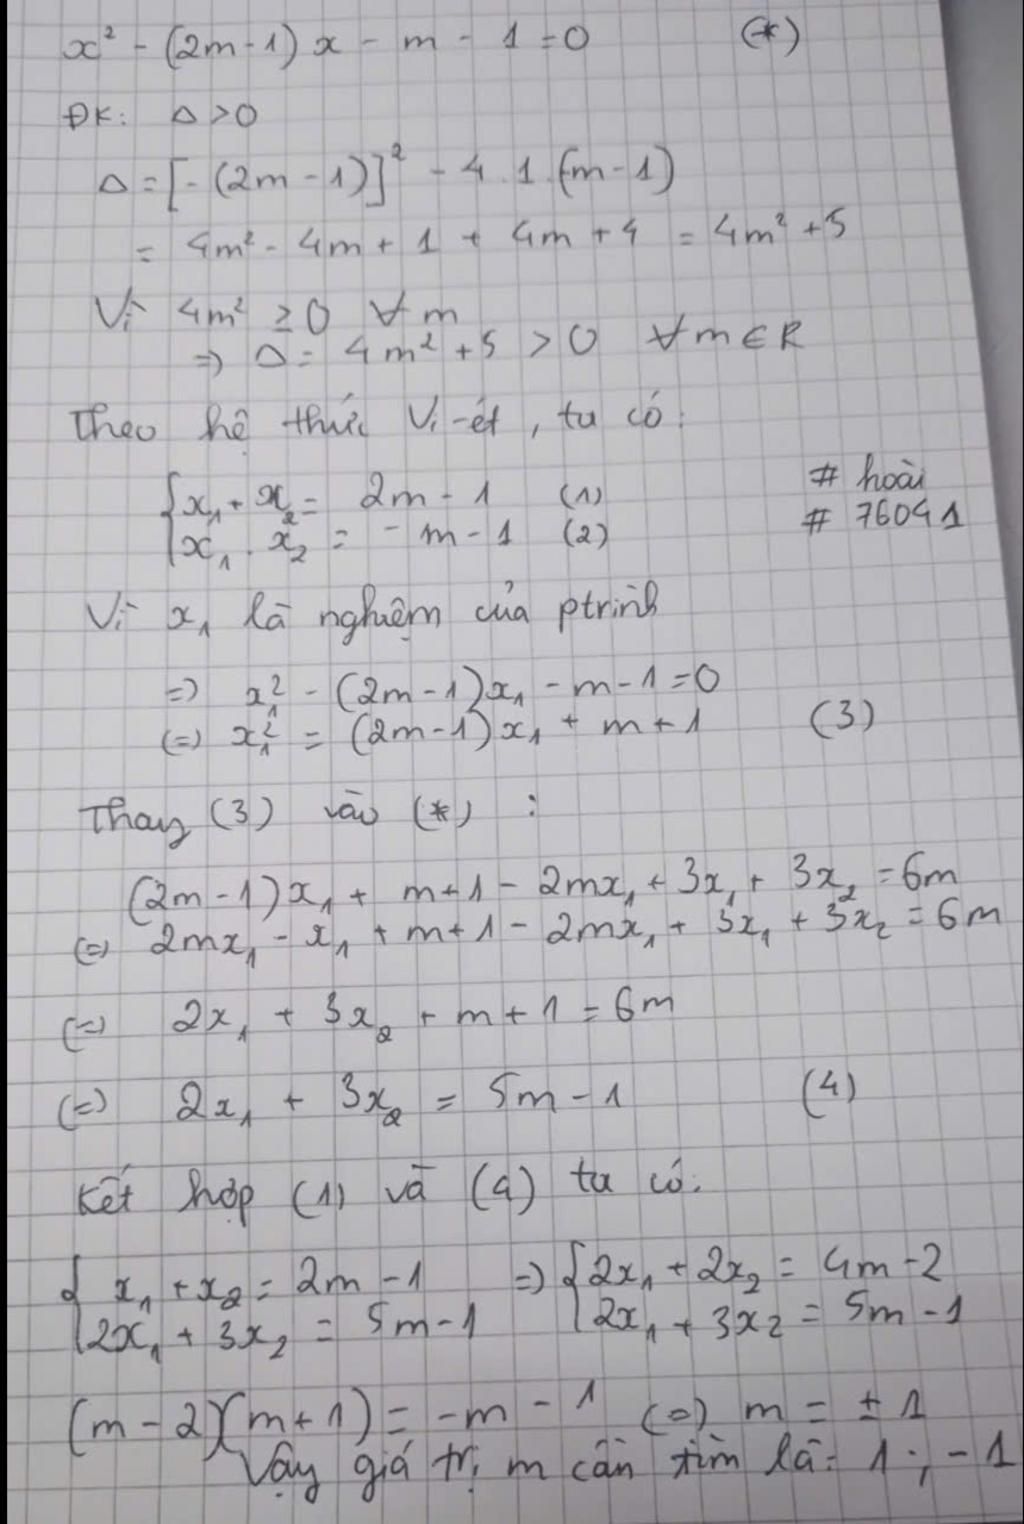 x² - (2m-1)x - m - 1 = 0 (*)
ĐK: Δ > 0
Δ = [-(2m-1)]² - 4.1.(-m-1)
= 4m² - 4m + 1 + 4m + 4 = 4m² + 5
Vì 4m² ≥ 0 ∀m
=> Δ = 4m² + 5 > 0 ∀m ∈ R
Theo hệ thức Vi-ét, ta có:
{x₁ + x₂ = 2m - 1 (1)
# hoài
{x₁ . x₂ = -m - 1 (2)
# 76041
Vì x₁ là nghiệm của ptrình
=> x₁² - (2m-1)x₁ - m - 1 = 0
(=) x₁² = (2m-1)x₁ + m + 1 (3)
Thay (3) vào (*) :
(2m-1)x₁ + m+1 - 2mx₁ + 3x₁ + 3x₂ = 6m
(=) 2mx₁ - x₁ + m+1 - 2mx₁ + 3x₁ + 3x₂ = 6m
(=) 2x₁ + 3x₂ + m + 1 = 6m
(=) 2x₁ + 3x₂ = 5m - 1 (4)
Kết hợp (1) và (4) ta có:
{x₁ + x₂ = 2m - 1 => {2x₁ + 2x₂ = 4m - 2
{2x₁ + 3x₂ = 5m - 1 {2x₁ + 3x₂ = 5m - 1
(m-2)(m+1) = -m - 1 (=) m = ± 1
Vậy giá trị m cần tìm là: 1; -1